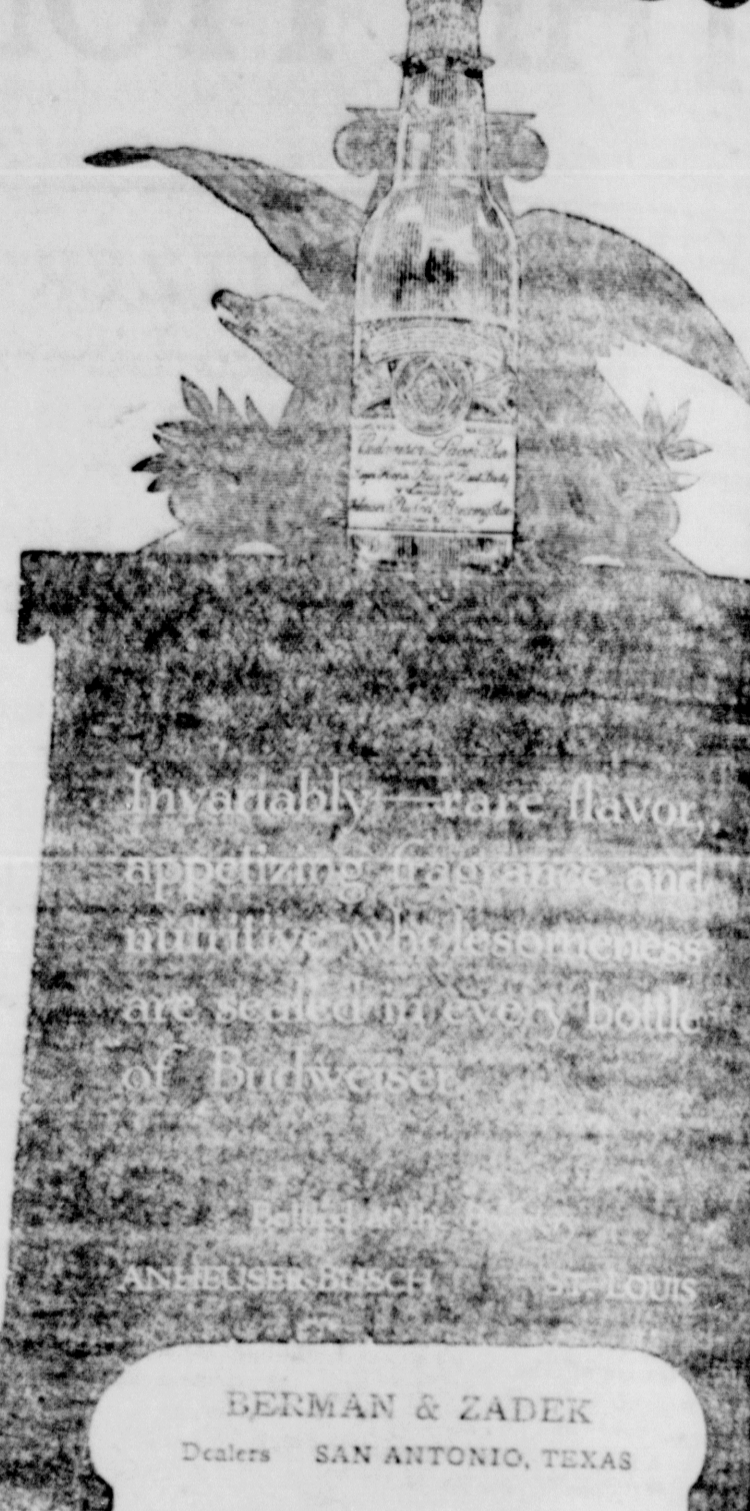 Budweiser Lager Bier
Invariably—rare flavor,
appetizing fragrance and
nutritive wholesomeness
are sealed in every bottle
of Budweiser
Bottled at the Brewery
ANHEUSER-BUSCH ST. LOUIS
BERMAN & ZADEK
Dealers SAN ANTONIO, TEXAS